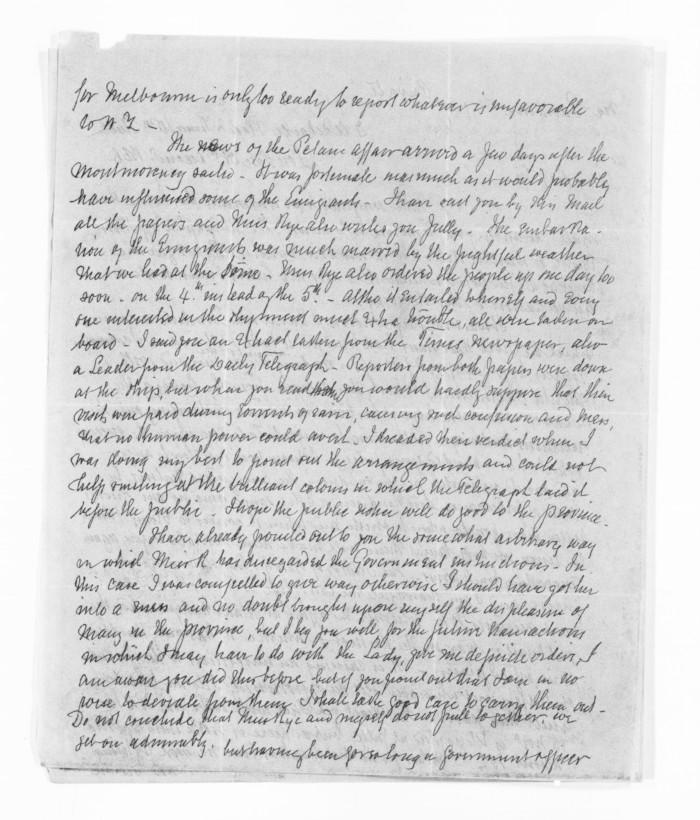 for Melbourne is only too ready to report whatever is unfavorable
to N Z -
The news of the Petane affair arrived a few days after the
Montmorency sailed - It was fortunate inasmuch as it would probably
have influenced some of the Emigrants - I have sent you by this Mail
all the papers and Miss Rye also writes you fully - The embarka-
tion of the Emigrants was much marred by the frightful weather
that we had at the time - Miss Rye also ordered the people up one day too
soon - on the 4th instead of the 5th - Altho it entailed herself and every
one interested in the shipment much extra trouble, all were taken on
board - I send you an Extract taken from the Times Newspaper, also
a Leader from the Daily Telegraph - Reporters from both papers were down
at the ship, but when you read them, you would hardly suppose that their
visits were paid during torrents of rain, causing such confusion and mess,
that no human power could avert - I dreaded their verdict when I
was doing my best to point out the arrangements and could not
help smiling at the brilliant colours in which the Telegraph laid it
before the public - I hope the public notice will do good to the province -
I have already pointed out to you the somewhat arbitrary way
in which Miss R has disregarded the Government instructions - In
this case I was compelled to give way otherwise I should have got her
into a mess and no doubt brought upon myself the displeasure of
many in the province, but I beg you will for the future transactions
in which I may have to do with the Lady, give me definite orders, I
am aware you did this before but if you point out that I am in no
wise to deviate from them I shall take good care to carry them out -
Do not conclude that Miss Rye and myself do not pull together. we
get on admirably. but having been for so long a Government officer